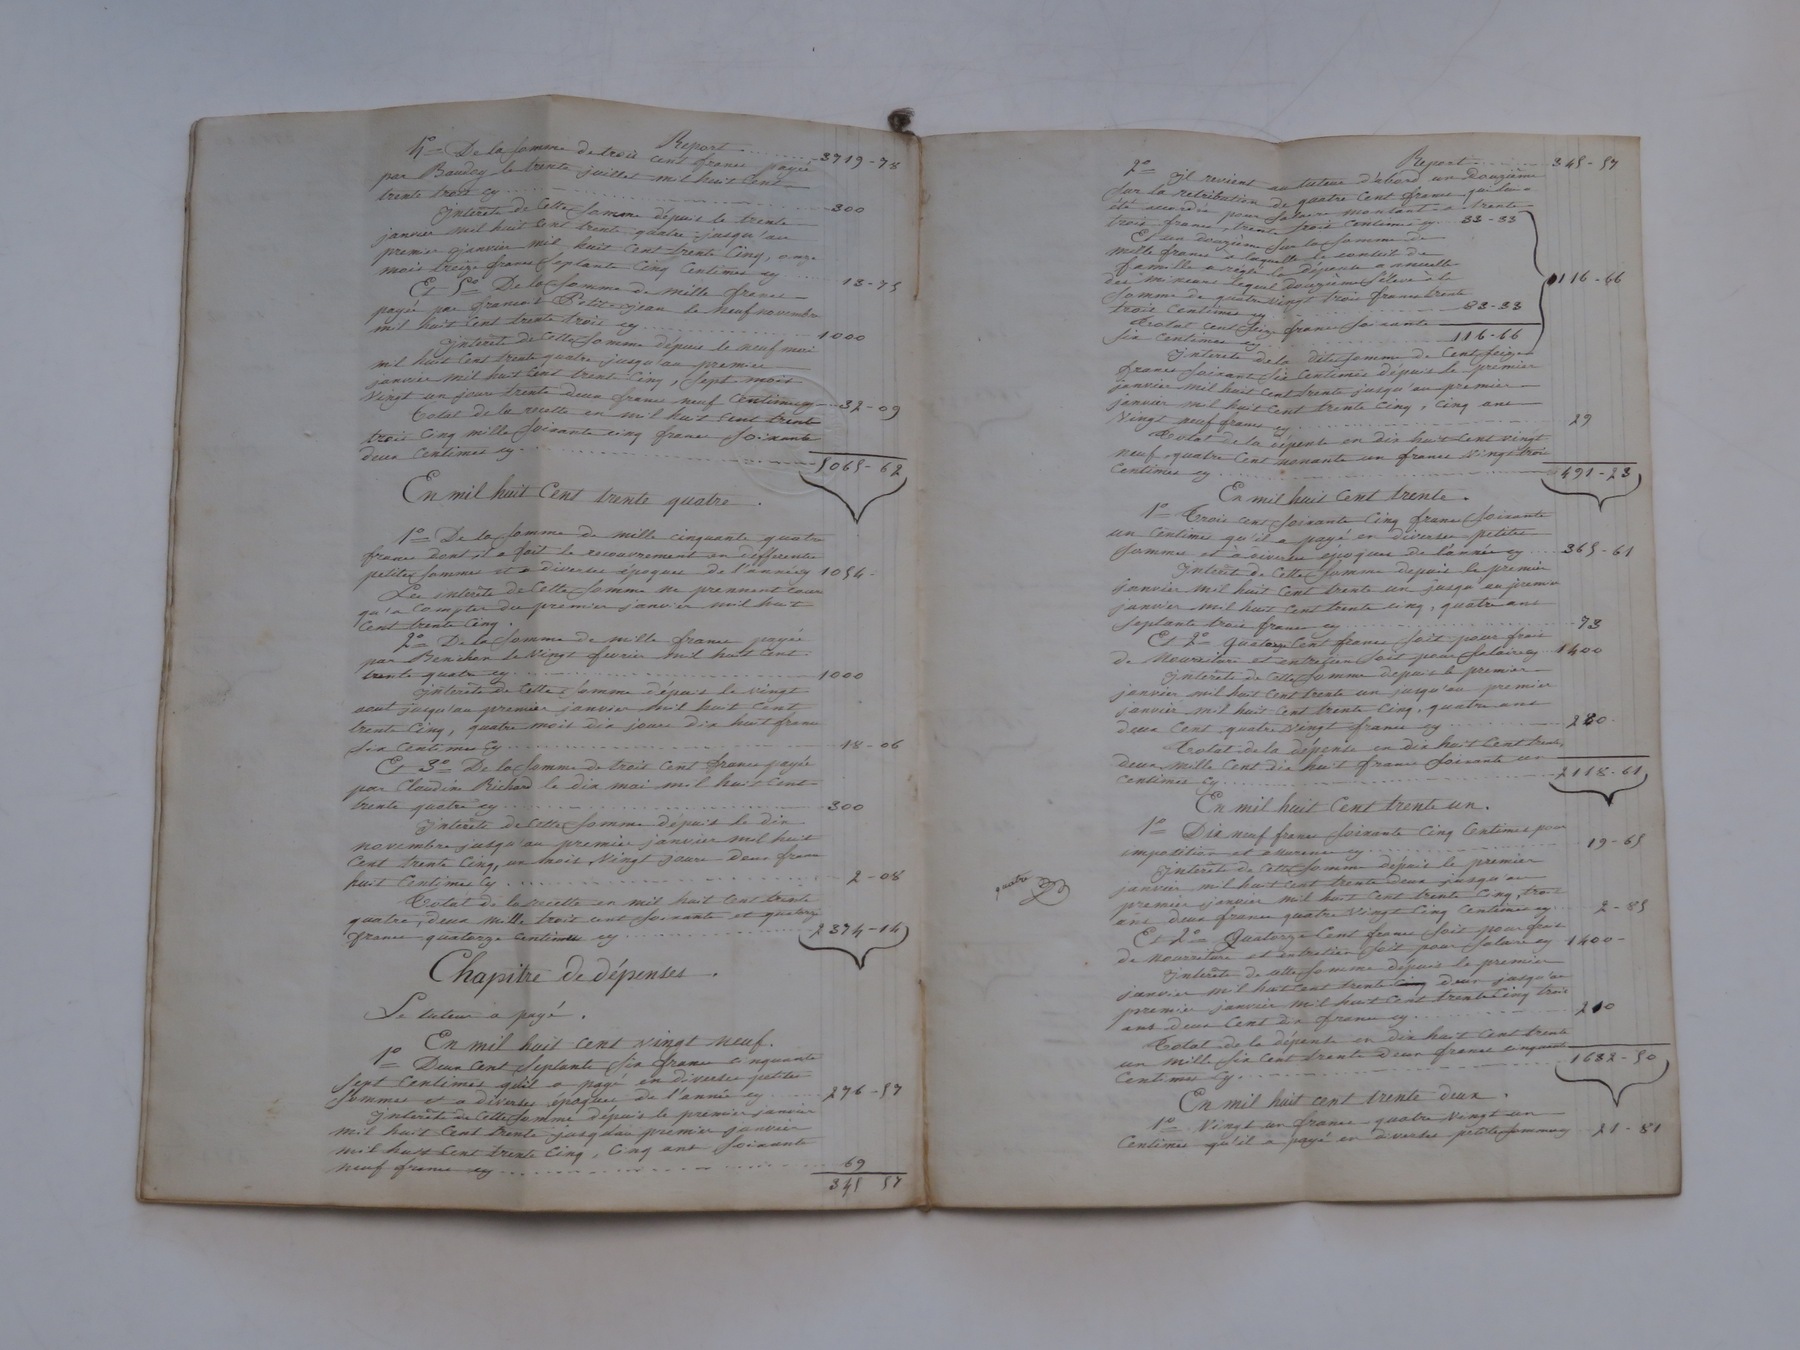 Report ......... 3719-78
4° De la somme de trois cent francs payée
par Baudoy le trente juillet mil huit cent
trente trois cy ......... 300
Interêts de cette somme dépuis le trente
janvier mil huit cent trente quatre jusqu'au
premier janvier mil huit cent trente cinq, onze
mois treize francs septante cinq centimes cy ... 13-75
Et 5° De la somme de mille francs
payée par francois Petit-jean le neuf novembre
mil huit cent trente trois cy ......... 1000
Interêts de cette somme dépuis le neuf mai
mil huit cent trente quatre jusqu'au premier
janvier mil huit cent trente cinq, sept mois
vingt un jours trente deux francs neuf centimes cy ... 32-09
Total de la recette en mil huit cent trente
trois cinq mille soixante cinq francs soixante
deux centimes cy ......... 5065-62
En mil huit cent trente quatre.
1° De la somme de mille cinquante quatre
francs dont il a fait le recouvrement en differentes
petites sommes et a diverses époques de l'année cy 1054-
Les interêts de cette somme ne prennent cour
qu'a compter du premier janvier mil huit
cent trente cinq.
2° De la somme de mille francs payée
par Benichon le vingt fevrier mil huit cent
trente quatre cy ......... 1000
Interêts de cette somme dépuis le vingt
aout jusqu'au premier janvier mil huit cent
trente cinq, quatre mois dix jours dix huit francs
six centimes cy ......... 18-06
Et 3° De la somme de trois cent francs payée
par Claudine Richard le dix mai mil huit cent
trente quatre cy ......... 300
Interêts de cette somme dépuis le dix
novembre jusqu'au premier janvier mil huit
cent trente cinq, un mois vingt jours deux francs
huit centimes cy ......... 2-08
Total de la recette en mil huit cent trente
quatre, deux mille trois cent soixante et quatorze
francs quatorze centimes cy ......... 2374-14
Chapitre de dépenses.
Le tuteur a payé.
En mil huit cent vingt neuf.
1° Deux cent septante six francs cinquante
sept centimes qu'il a payé en diverses petites
sommes et a diverses époques de l'année cy ... 276-57
Interêts de cette somme dépuis le premier janvier
mil huit cent trente jusqu'au premier janvier
mil huit cent trente cinq, cinq ans soixante
neuf francs cy ......... 69
345 57
Report ......... 345-57
2° Il revient au tuteur d'abord un douzième
sur la retribution de quatre cent francs qui lui a
été accordée pour salaire montant a trente
trois francs, trente trois centimes cy ... 33-33
Et un douzième sur la somme de
mille francs a laquelle le conseil de
famille a réglé la dépense annuelle
des mineurs lequel douzième s'élève à la
somme de quatre vingt trois francs trente
trois centimes cy ......... 83-33
Total cent seize francs soixante
six centimes cy ......... 116-66
116-66
Interêts de la dite somme de cent seize
francs soixante six centimes dépuis le premier
janvier mil huit cent trente jusqu'au premier
janvier mil huit cent trente cinq, cinq ans
vingt neuf francs cy ......... 29
Total de la dépense en dix huit cent vingt
neuf, quatre cent nonante un francs vingt trois
centimes cy ......... 491-23
En mil huit cent trente.
1° Trois cent soixante cinq francs soixante
un centimes qu'il a payé en diverses petites
sommes et à diverses époques de l'année cy ... 365-61
Interêts de cette somme dépuis le premier
janvier mil huit cent trente un jusqu'au premier
janvier mil huit cent trente cinq, quatre ans
septante trois francs cy ......... 73
Et 2° quatorze cent francs soit pour frais
de nourriture et entretien soit pour salaire cy 1400
Interêts de cette somme depuis le premier
janvier mil huit cent trente un jusqu'au premier
janvier mil huit cent trente cinq, quatre ans
deux cent quatre vingt francs cy ......... 280
Total de la dépense en dix huit cent trente,
deux mille cent dix huit francs soixante un
centimes cy ......... 2118-61
En mil huit cent trente un.
1° Dix neuf francs soixante cinq centimes pour
imposition et assurance cy ......... 19-65
Interêts de cette somme dépuis le premier
janvier mil huit cent trente deux jusqu'au
premier janvier mil huit cent trente cinq, trois
ans deux francs quatre vingt cinq centimes cy ... 2-85
quatre
Et 2° Quatorze cent francs soit pour frais
de nourriture et entretien soit pour salaire cy 1400-
Interêts de cette somme dépuis le premier
janvier mil huit cent trente deux jusqu'au
premier janvier mil huit cent trente cinq trois
ans deux cent dix francs cy ......... 210
Total de la dépense en dix huit cent trente
un mille six cent trente deux francs cinquante
centimes cy ......... 1632-50
En mil huit cent trente deux.
1° Vingt un francs quatre vingt un
centimes qu'il a payé en diverses petites sommes cy ... 21-81